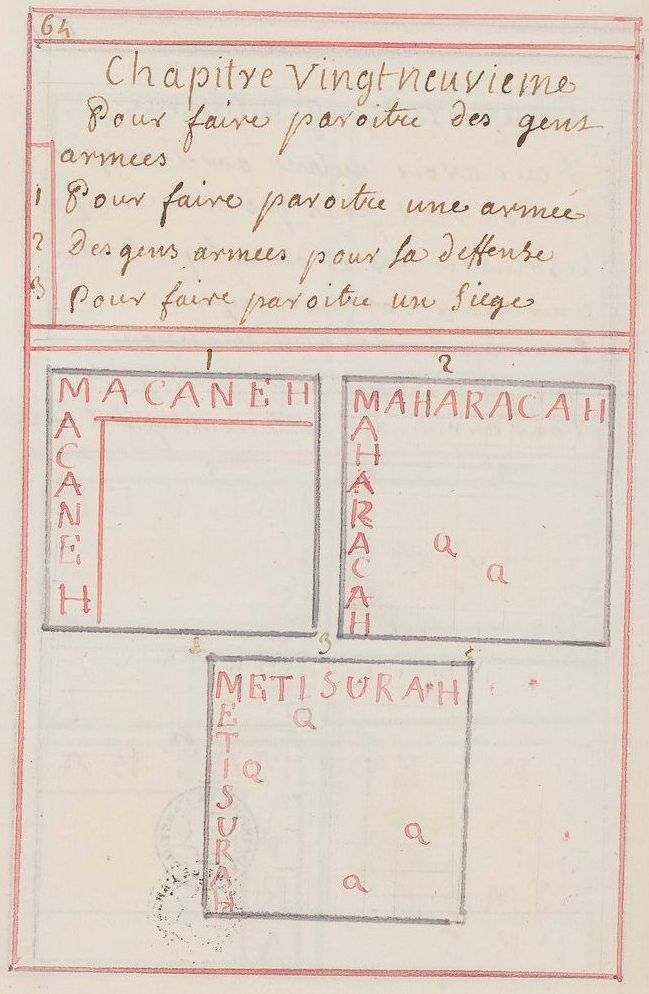 64
Chapitre Vingtneuvieme
Pour faire paroitre des gens
armees
1 Pour faire paroitre une armée
2 Des gens armees pour sa deffense
3 Pour faire paroitre un Siege
1
MACANEH
A
C
A
N
E
H
2
MAHARACAH
A
H
A
R
A
C
A
H
Q
Q
3
METISURAH
E
T
I
S
U
R
A
H
Q
Q
Q
Q